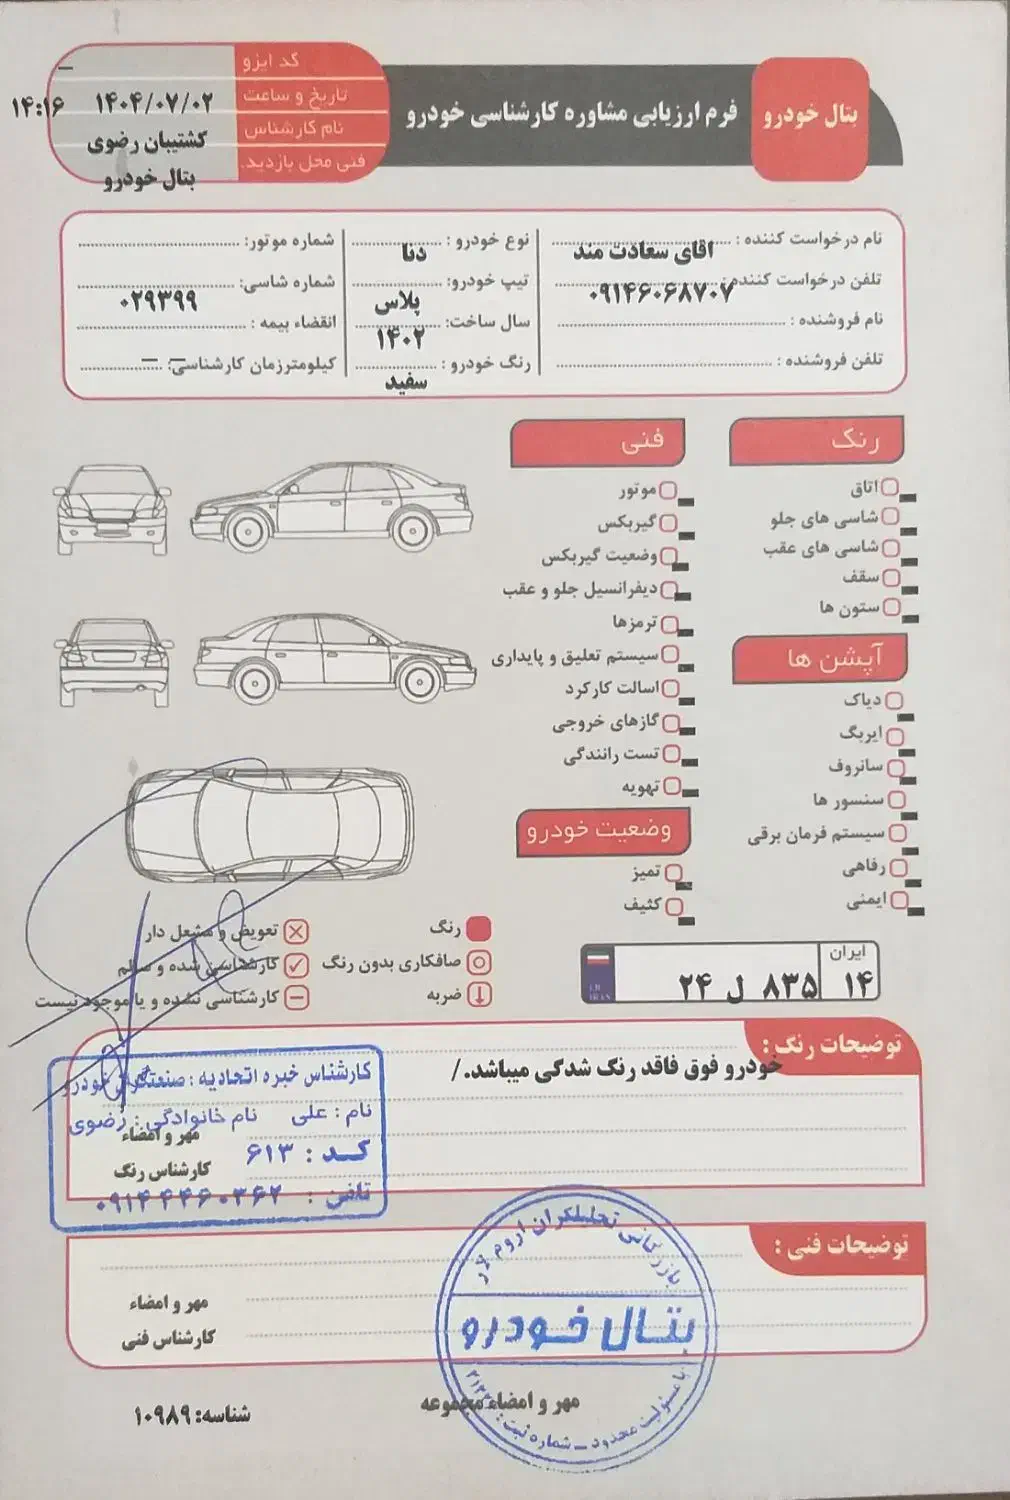 بتال خودرو
فرم ارزیابی مشاوره کارشناسی خودرو
کد ایزو –
تاریخ و ساعت ۱۴۰۴/۰۷/۰۲ ۱۴:۱۶
نام کارشناس کشتیبان رضوی
فنی محل بازدید. بتال خودرو
نام درخواست کننده : اقای سعادت مند
تلفن درخواست کننده: ۰۹۱۴۶۰۶۸۷۰۷
نام فروشنده :
تلفن فروشنده :
نوع خودرو : دنا
تیپ خودرو: پلاس
سال ساخت: ۱۴۰۲
رنگ خودرو : سفید
شماره موتور:
شماره شاسی: ۰۲۹۳۹۹
انقضاء بیمه :
کیلومترزمان کارشناسی: – –
رنگ
اتاق
شاسی های جلو
شاسی های عقب
سقف
ستون ها
آپشن ها
دیاک
ایربگ
سانروف
سنسور ها
سیستم فرمان برقی
رفاهی
ایمنی
فنی
موتور
گیربکس
وضعیت گیربکس
دیفرانسیل جلو و عقب
ترمزها
سیستم تعلیق و پایداری
اسالت کارکرد
گازهای خروجی
تست رانندگی
تهویه
وضعیت خودرو
تمیز
کثیف
رنگ
صافکاری بدون رنگ
ضربه
تعویض و مشعل دار
کارشناسی شده و سالم
کارشناسی نشده و یا موجود نیست
ایران
۱۴
۸۳۵ ل ۲۴
I.R
IRAN
توضیحات رنگ :
خودرو فوق فاقد رنگ شدگی میباشد./
کارشناس خبره اتحادیه : صنعتگران خودرو
نام : علی نام خانوادگی : رضوی
کد : ۶۱۳
تلفن : ۰۹۱۴۴۴۶۰۳۶۲
مهر و امضاء
کارشناس رنگ
توضیحات فنی :
مهر و امضاء
کارشناس فنی
بازرگانی تحلیلگران اروم
بتال خودرو
با مسئولیت محدود – شماره ثبت :
مهر و امضاء مجموعه
شناسه: ۱۰۹۸۹